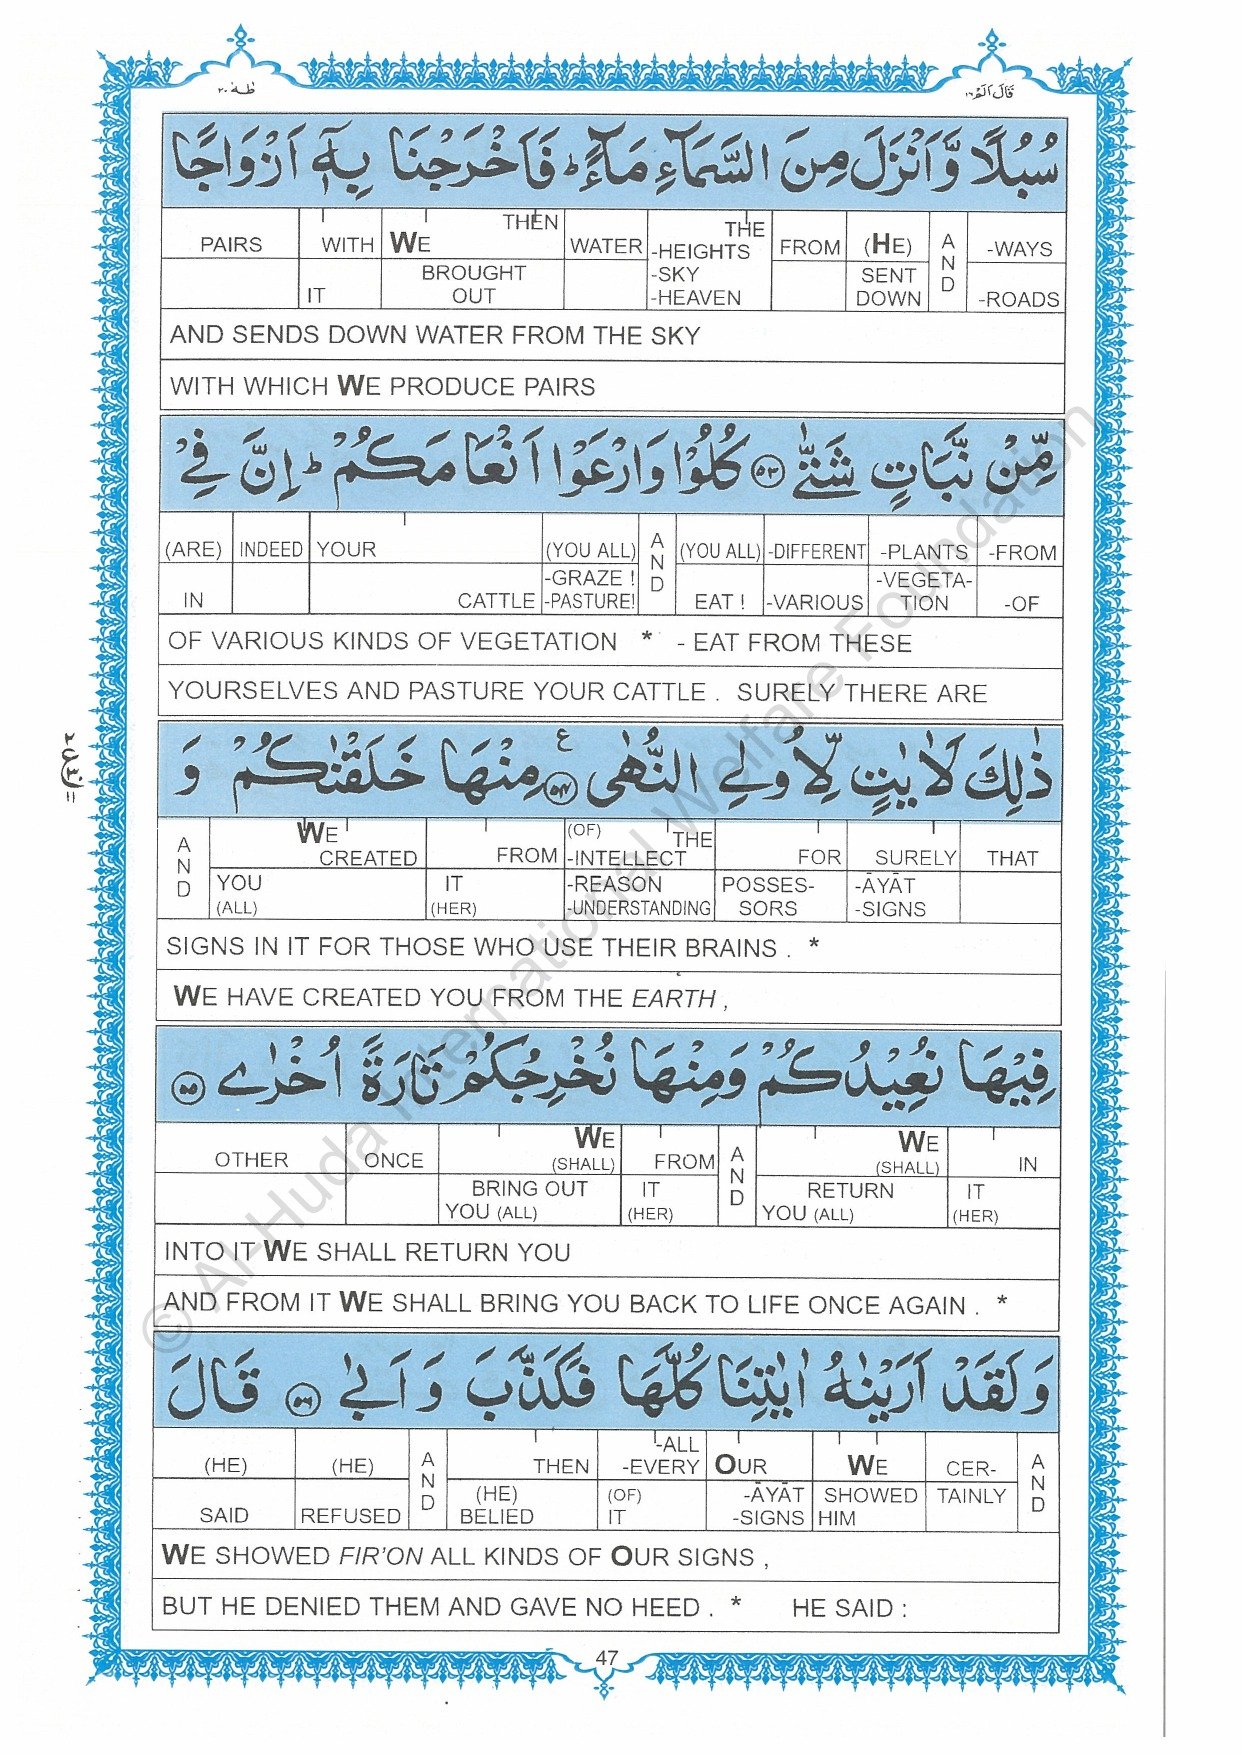 طٰهٰ ٢٠
قَالَ اَلَمْ ١٦
سُبُلًا وَّاَنْزَلَ مِنَ السَّمَآءِ مَآءً ؕ فَاَخْرَجْنَا بِهٖۤ اَزْوَاجًا
PAIRS WITH WE THEN WATER THE -HEIGHTS FROM (HE) AND -WAYS
IT BROUGHT OUT -SKY -HEAVEN SENT DOWN -ROADS
AND SENDS DOWN WATER FROM THE SKY
WITH WHICH WE PRODUCE PAIRS
مِّنْ نَّبَاتٍ شَتّٰى ﴿٥٣﴾ كُلُوْا وَارْعَوْا اَنْعَامَكُمْ ؕ اِنَّ فِيْ
(ARE) INDEED YOUR (YOU ALL) AND (YOU ALL) -DIFFERENT -PLANTS -FROM
IN CATTLE -GRAZE ! -PASTURE! EAT ! -VARIOUS -VEGETA- TION -OF
OF VARIOUS KINDS OF VEGETATION * - EAT FROM THESE
YOURSELVES AND PASTURE YOUR CATTLE . SURELY THERE ARE
ذٰلِكَ لَاٰيٰتٍ لِّاُولِي النُّهٰى ﴿٥٤﴾ ع مِنْهَا خَلَقْنٰكُمْ وَ
AND WE CREATED FROM (OF) THE -INTELLECT FOR SURELY THAT
YOU (ALL) IT (HER) -REASON -UNDERSTANDING POSSES- SORS -ĀYĀT -SIGNS
SIGNS IN IT FOR THOSE WHO USE THEIR BRAINS . *
WE HAVE CREATED YOU FROM THE EARTH ,
فِيْهَا نُعِيْدُكُمْ وَمِنْهَا نُخْرِجُكُمْ تَارَةً اُخْرٰى ﴿٥٥﴾
OTHER ONCE WE (SHALL) FROM AND WE (SHALL) IN
BRING OUT YOU (ALL) IT (HER) RETURN YOU (ALL) IT (HER)
INTO IT WE SHALL RETURN YOU
AND FROM IT WE SHALL BRING YOU BACK TO LIFE ONCE AGAIN . *
وَلَقَدْ اَرَيْنٰهُ اٰيٰتِنَا كُلَّهَا فَكَذَّبَ وَاَبٰى ﴿٥٦﴾ قَالَ
(HE) (HE) AND THEN -ALL -EVERY OUR WE CER- AND
SAID REFUSED (HE) BELIED (OF) IT -ĀYĀT -SIGNS SHOWED HIM TAINLY
WE SHOWED FIR'ON ALL KINDS OF OUR SIGNS ,
BUT HE DENIED THEM AND GAVE NO HEED . * HE SAID :
47
© Al-Huda International Welfare Foundation